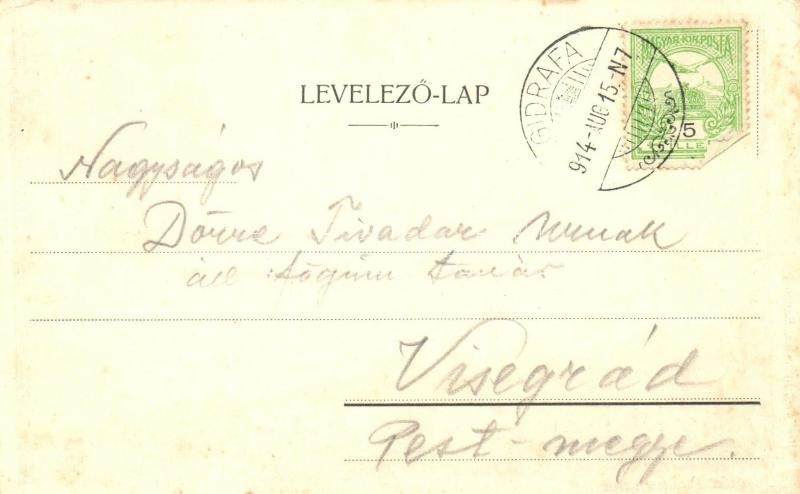 LEVELEZŐ-LAP
MAGYAR KIR. POSTA
5
GIDRAFA
914 - AUG 15 - N7
Nagyságos
Dörre Tivadar Urnak
áll főgim tanár
Visegrád
Pest-megye.